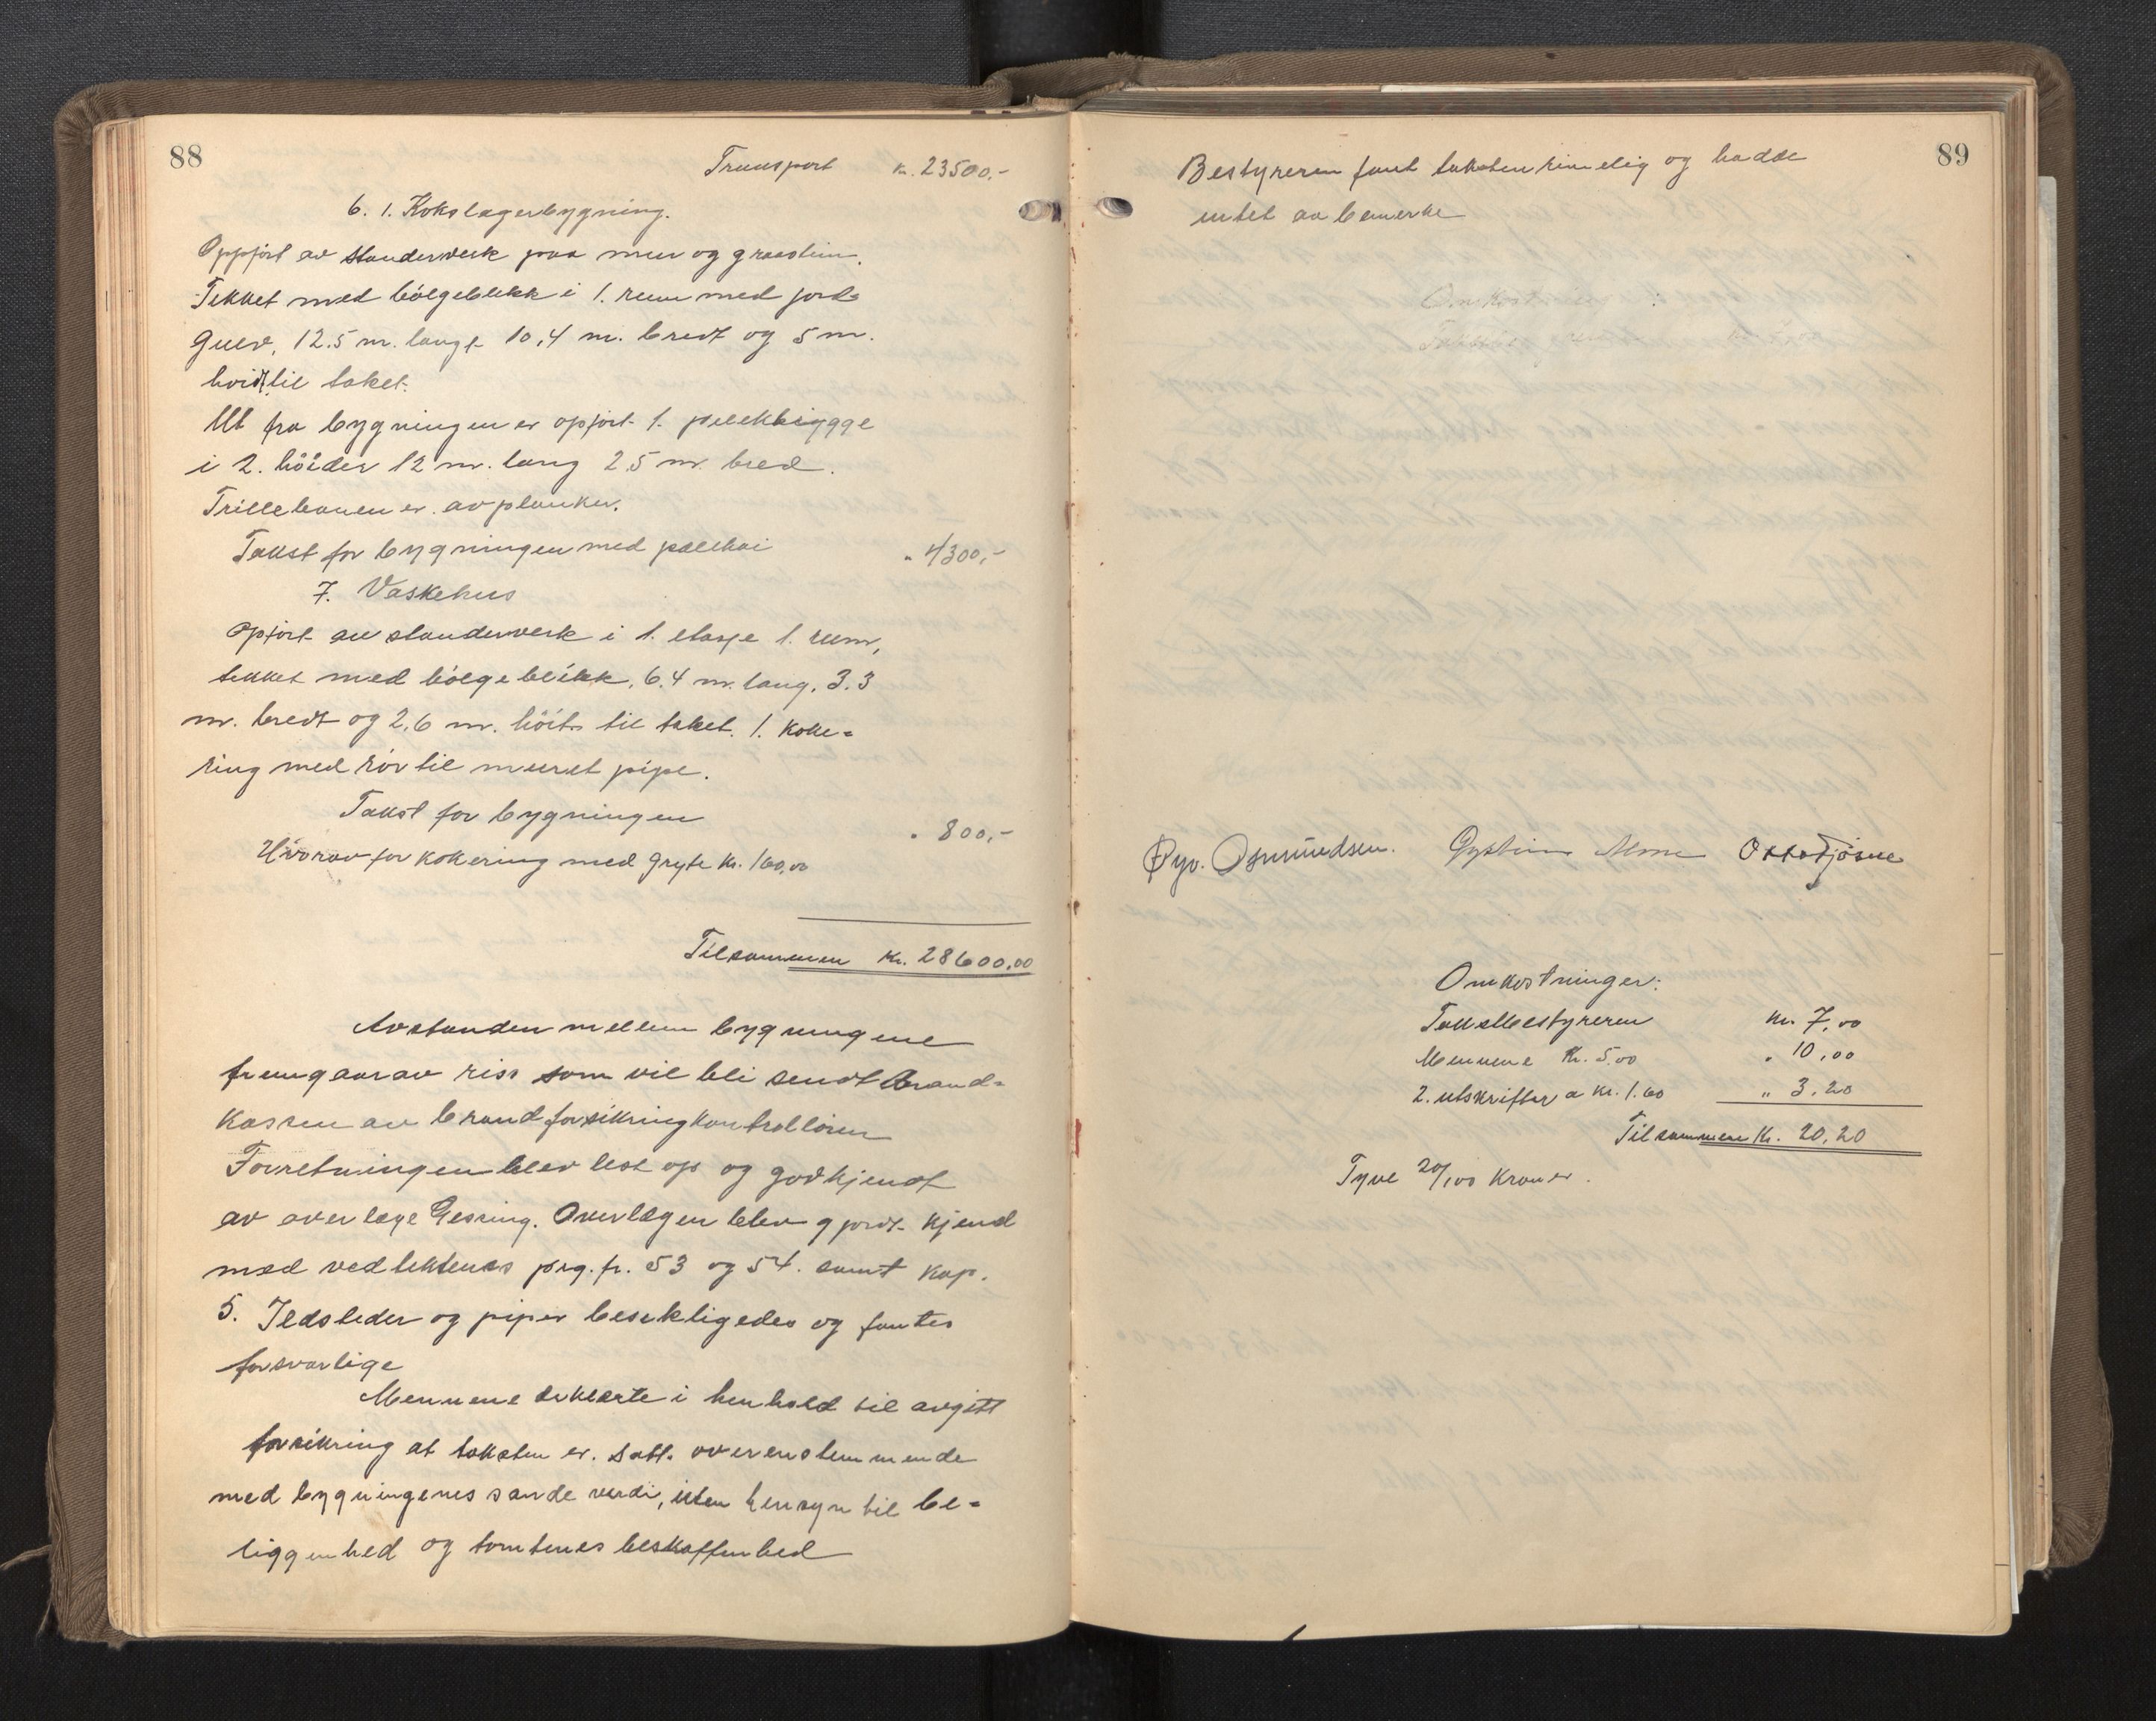 88
Transport kr. 23500,-
6. 1. Kokslagerbygning.
Oppført av standerverk paa mur og graastein.
Tekket med bölgeblikk i 1. rum med jord-
gulv, 12.5 m. langt 10,4 m. bredt og 5 m.
höidt til taket.
Ut fra bygningen er opført 1. pelekbrygge
i 2. höider 12 m. lang 2.5 m. bred.
Trillebanen er av planker.
Takst for bygningen med pælekai " 4300,-
7. Vaskehus
Opført av standerverk i 1. etasje 1. rum,
tekket med bölgeblikk, 6.4 m. lang, 3.3
m. bredt og 2,6 m. höit til taket. 1. koke-
ring med rör til muret pipe.
Takst for bygningen " 800,-
Hvorav for kokering med gryte kr. 160,00
Tilsammen kr. 28600,00
Avstanden mellem bygningene
fremgaar av riss som vil bli sendt Brand-
kassen av brandforsikringkontrollören
Forretningen blev lest op og godkjendt
av overlæge Gessing. Overlægen blev gjordt kjend
med vedtektenes prg. fr. 53 og 54. samt kap.
5. Ildsteder og piper besiktigedes og fantes
forsvarlige
Mennene erklærte i henhold til avgitt
forsikring at taksten er. satt. overenstemmende
med bygningenes sande verdi, uten hensyn til be-
liggenhed og tomtenes beskaffenhed
89
Bestyreren fant taksten rimelig og hadde
intet aa bemerke
Omkostninger:
Øyv. Osmundsen. Gystein Alme Otto Fjösne
Omkostninger:
Takstbestyreren kr. 7,00
Mennene kr. 5.00 " 10,00
2. utskrifter a kr. 1.60 " 3,20
Tilsammen kr. 20,20
Tyve 20/100 kroner.